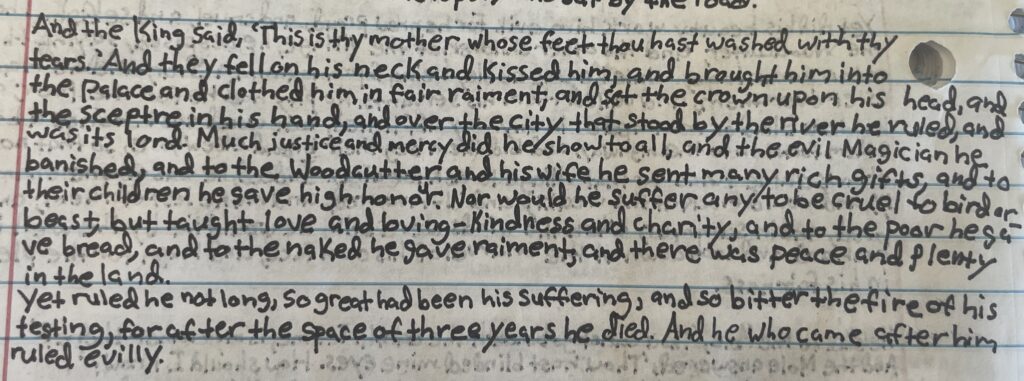 by the road.
And the King said, 'This is thy mother whose feet thou hast washed with thy
tears.' And they fell on his neck and kissed him, and brought him into
the Palace and clothed him in fair raiment, and set the crown upon his head, and
the sceptre in his hand, and over the city that stood by the river he ruled, and
was its lord. Much justice and mercy did he show to all, and the evil Magician he
banished, and to the Woodcutter and his wife he sent many rich gifts, and to
their children he gave high honour. Nor would he suffer any to be cruel to bird or
beast, but taught love and loving-kindness and charity, and to the poor he ga-
ve bread, and to the naked he gave raiment, and there was peace and plenty
in the land.
Yet ruled he not long, so great had been his suffering, and so bitter the fire of his
testing, for after the space of three years he died. And he who came after him
ruled evilly.